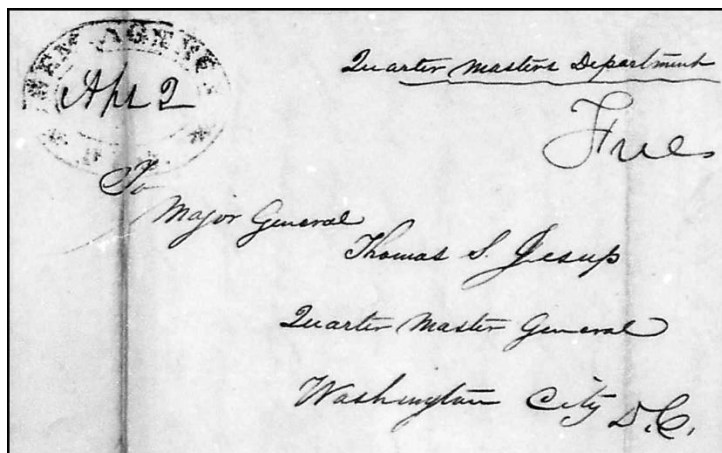 AGENCY
Apl 2
Quarter Masters Department
Free
To
Major General
Thomas S. Jesup
Quarter Master General
Washington City D.C.